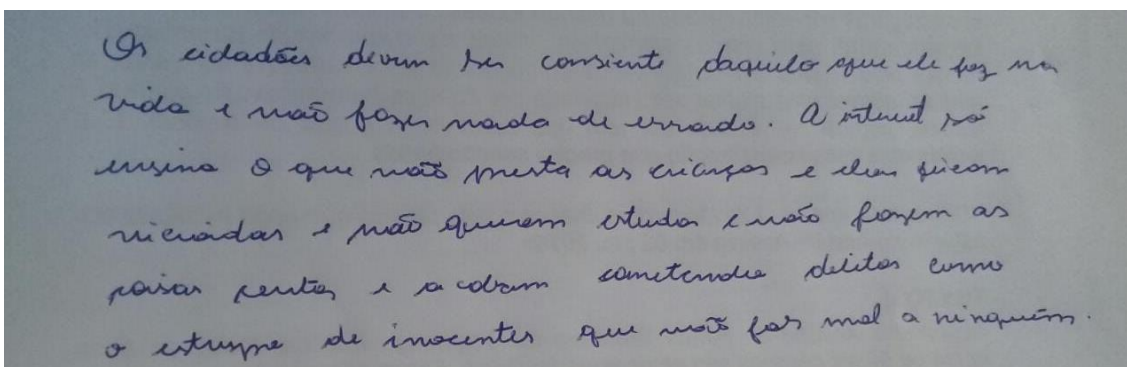 Os cidadões devem ser consiente daquilo que ele faz na
vida e não fazer nada de errado. A internet só
ensina o que não presta as crianças e elas ficam
viciadas e não querem estudar e não fazem as
coisas certas e acabam cometendo delitos como
o estrupe de inocentes que não fas mal a ninguém.